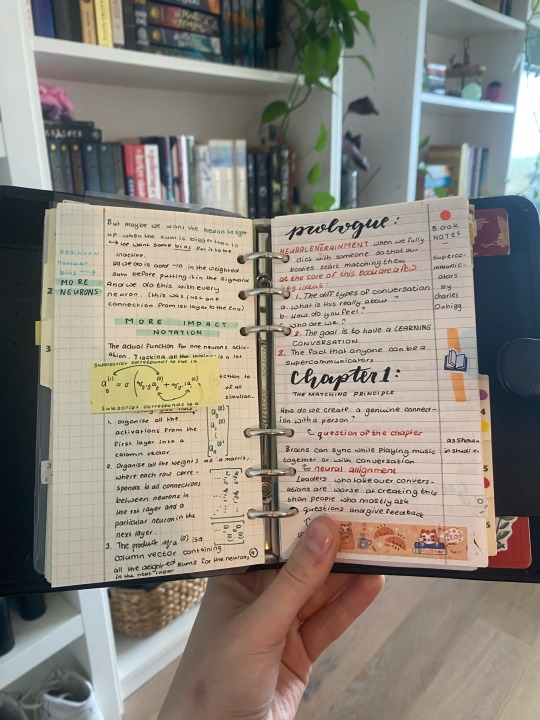 But maybe we want the neuron to light
up when the sum is bigger than 10
↳ we want some bias for it to be
inactive.
All we do is add -10 in the weighted
sum before putting it in the sigmoid
And we do this with every
neuron. (this was just one
connection from 1st layer to the 2nd)
Additional
bias →
MORE
NEURONS:
2
MORE IMPACT
NOTATION
The actual function for one neurons activ-
ation. Tracking all the is a lot
3
Subscript correspond to the
Subscript corresponds to a
of all
1. Organise all the
activations from the
first layer into a
column vector
2. Organise all the weights as a matrix,
where each row corre-
sponds to all connections
between neurons in
the 1st layer and a
particular neuron in the
next layer
3. The product is a
column vector containing
all the weighted sums for the neurons,
in the next layer
4
prologue:
NEURALENERAINMENT when we fully
click with someone so that our
bodies start matching them
@ the core of this book are a few
key ideas:
1. The diff types of conversation
a. what is this really about?
b. How do you feel?
who are we?
2. The goal is to have a LEARNING
CONVERSATION.
3. The fact that anyone can be a
supercommunicator
BOOK
NOTES
Superco-
mmunic-
ators
by
Charles
Duhigg
Chapter 1:
THE MATCHING PRINCIPLE
How do we create a genuine connect-
ion with a person?
↳ question of the chapter
Brains can sync while playing music
together or with conversation
↳ neural allignment
Leaders who take over convers-
ations are worse at creating this
than people who mostly ask
questions and give feedback
as shown
in studies